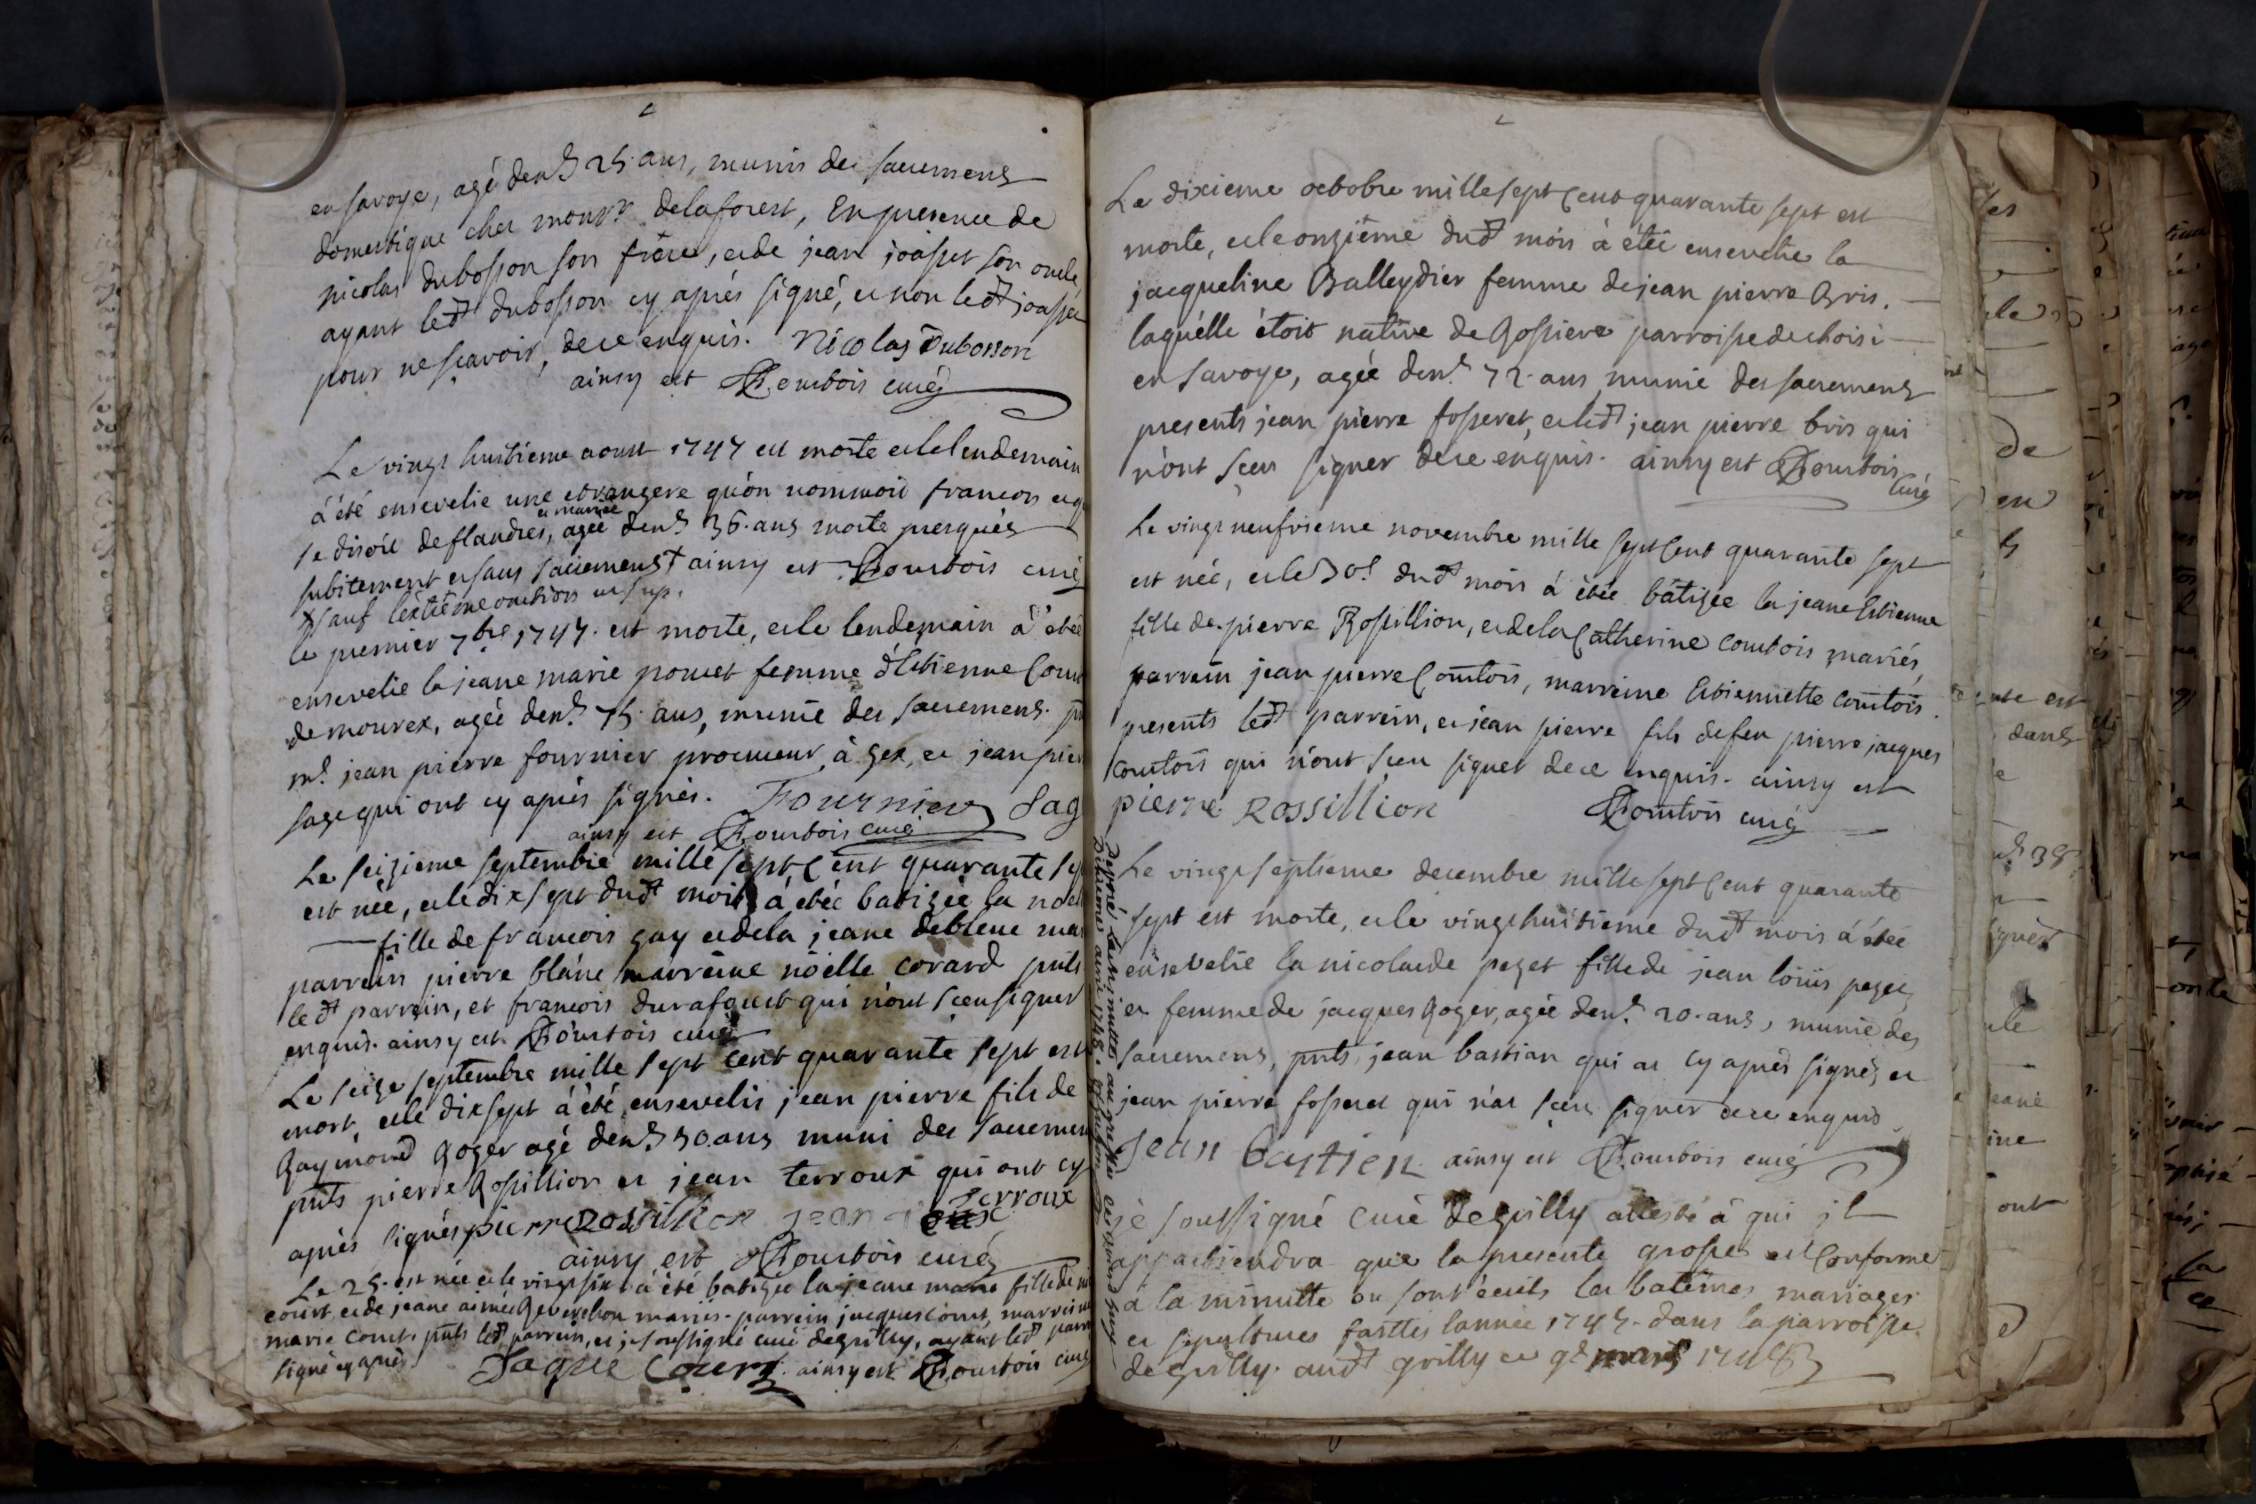 en savoye, agé den.s 25. ans, munis des sacremens
domestique chez mons.r delaforest, en presence de
nicolas dubosson son frère, et de jean joasset son oncle,
ayant led.t dubosson cy aprés signé, et non led.t joasset
pour ne scavoir, de ce enquis. Nicolas Dubosson
ainsy est Courtois curé
Le vingt huitieme aoust 1747 est morte et le lendemain
á été ensevelie une etrangere qu'on nommoit francois et q
se disoit de flandres, et mariée agée den.s 36. ans morte presques
subitement et sans sacremens + ainsy est Courtois curé
+ sauf l'extrême onction
le premier 7.bre 1747. est morte, et le lendemain á étéé
ensevelie la jeane marie poncet femme d'Etienne Court
de mourex, agée den.s 75. ans, munie des sacremens.
m.e jean pierre fournier procureur á gex, et jean pier
sage qui ont cy aprés signés. Fournier Sag
ainsy est Courtois curé
Le seizieme septembre mille sept Cent quarante sep
est née, et le dix sept dud.t mois á étéé batisée la noel
fille de francois gay et de la jeane deblene mar
parrein pierre blanc marreine nöelle corard pnts
led.t parrein, et francois durafourt qui n'ont sceu signer
enquis. ainsy est Courtois curé
Le seize septembre mille sept cent quarante sept est
mort, et le dix sept á été ensevelis jean pierre fils de
Raymond Roger agé den.s 50. ans muni des sacremen
pnts pierre Rossillion et jean terroux qui ont cy
aprés signés pierre Rossillion jean terroux
ainsy est Courtois curé
Le 25. est née et le vingt six á été batisée la jeane marie fille de
court et de jeane aimée mariés. parrein jacques Court, marreine
marie Court. pnts led.t parrein, et je soussigné curé de grilly, ayant led.t parr
signé cy aprés. Jaque Court. ainsy est Courtois curé
Le dixieme octobre mille sept Cent quarante sept est
morte, et le onziéme dud.t mois á étéé ensevelie la
jacqueline Balleydier femme de jean pierre Bris.
laquélle étoit native de Rossiere parroisse de choisi
en savoye, agée den.s 72. ans munie des sacremens
presents jean pierre fosseret, et led.t jean pierre bris qui
n'ont sceu signer de ce enquis. ainsy est Courtois
Curé
Le vingt neufvieme novembre mille sept Cent quarante sept
est née, et le 30.e dud.t mois á étéé bâtisée la jeane Etienne
fille de pierre Rossillion, et de la Catherine Courtois mariés,
parrein jean pierre Courtois, marreine Etiennette Courtois.
presents led.t parrein, et jean pierre fils de feu pierre jacques
Courtois qui n'ont sceu signer de ce enquis. ainsy est
pierre Rossillion Courtois curé
Le vingt septieme decembre mille sept Cent quarante
sept est morte, et le vingt huitieme dud.t mois á étéé
ensevelie la nicolarde pezet fille de jean loüis pezet,
et femme de jacques Roger, agée den.s 20. ans, munie des
sacremens, pnts jean bastian qui a cy aprés signé, et
jean pierre fosseret qui n'at sceu signer de ce enquis.
Jean bastien ainsy est Courtois curé
je soussigné curé de grilly atteste á qui il
appartiendra que la presente grosse est Conforme
á la minutte ou sont écrits les batêmes mariages
et sepultures faittes lannée 1747. dans la parroisse
de grilly. aud.t grilly ce 9.e mars 1748